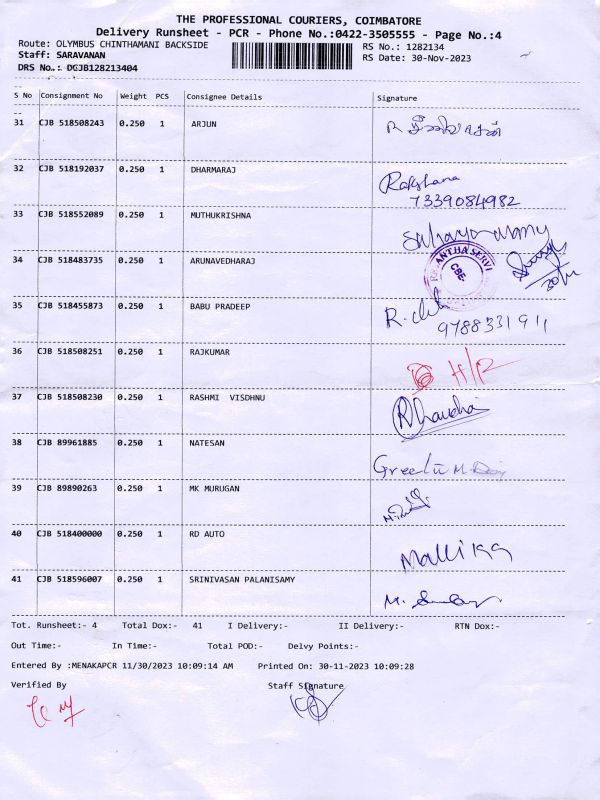 THE PROFESSIONAL COURIERS, COIMBATORE
Delivery Runsheet - PCR - Phone No.:0422-3505555 - Page No.:4
Route: OLYMBUS CHINTHAMANI BACKSIDE RS No.: 1282134
Staff: SARAVANAN RS Date: 30-Nov-2023
DRS No.: DGJB128213404
S No Consignment No Weight PCS Consignee Details Signature
31 CJB 518508243 0.250 1 ARJUN
32 CJB 518192037 0.250 1 DHARMARAJ Rakshana
7339084982
33 CJB 518552089 0.250 1 MUTHUKRISHNA
34 CJB 518483735 0.250 1 ARUNAVEDHARAJ
CBE
35 CJB 518455873 0.250 1 BABU PRADEEP
9788331911
36 CJB 518508251 0.250 1 RAJKUMAR
37 CJB 518508230 0.250 1 RASHMI VISDHNU
38 CJB 89961885 0.250 1 NATESAN
39 CJB 89890263 0.250 1 MK MURUGAN
40 CJB 518400000 0.250 1 RD AUTO Mallika
41 CJB 518596007 0.250 1 SRINIVASAN PALANISAMY
Tot. Runsheet:- 4 Total Dox:- 41 I Delivery:- II Delivery:- RTN Dox:-
Out Time:- In Time:- Total POD:- Delvy Points:-
Entered By :MENAKAPCR 11/30/2023 10:09:14 AM Printed On: 30-11-2023 10:09:28
Verified By Staff Signature